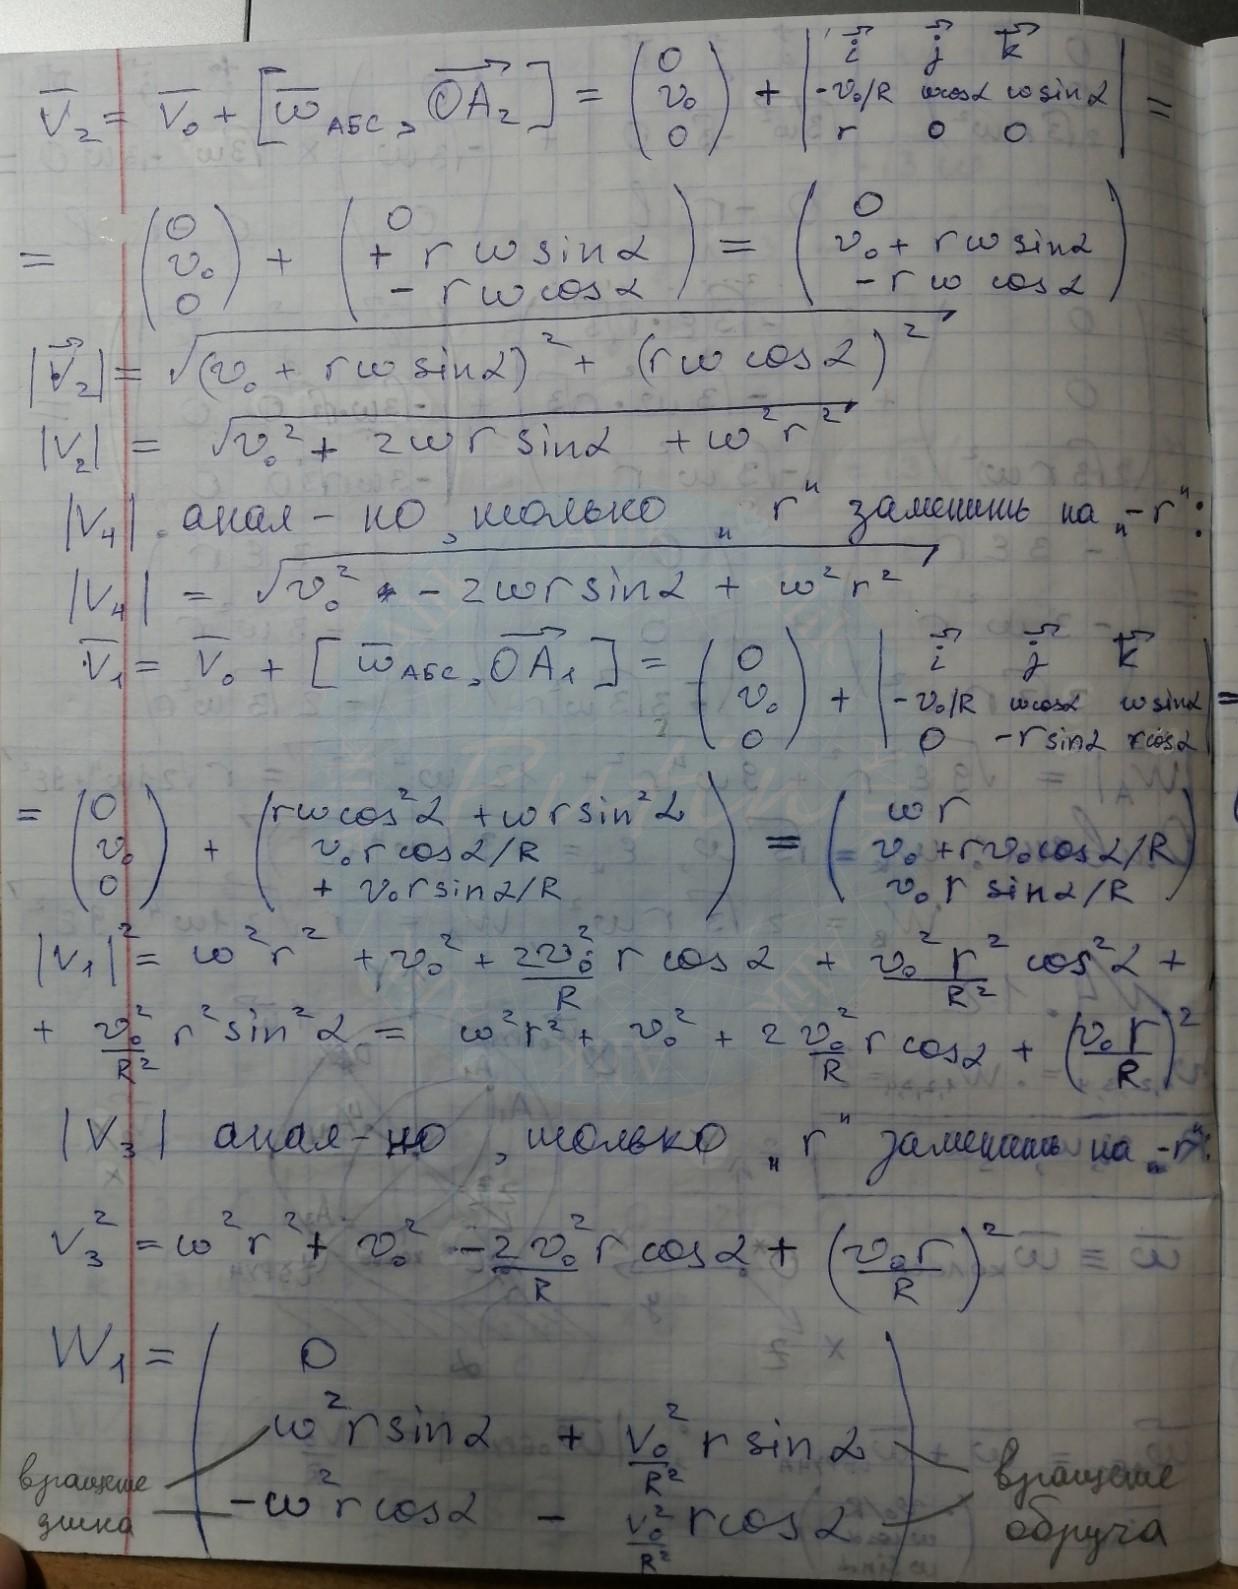 V̅₂ = V̅₀ + [ω̅_АБС, OA₂] = (0; v₀; 0) + |i j k; -v₀/R ωcosα ωsinα; r 0 0| =
= (0; v₀; 0) + (0; + r ω sinα; - r ω cosα) = (0; v₀ + r ω sinα; - r ω cosα)
|V₂| = √((v₀ + r ω sinα)² + (r ω cosα)²)
|V₂| = √(v₀² + 2ω r sinα + ω² r²)
|V₄| анал-но, только „r" заменить на „-r":
|V₄| = √(v₀² - 2ω r sinα + ω² r²)
V̅₁ = V̅₀ + [ω̅_АБС, OA₁] = (0; v₀; 0) + |i j k; -v₀/R ωcosα ωsinα; 0 -r sinα r cosα| =
= (0; v₀; 0) + (rω cos²α + ωr sin²α; v₀ r cosα/R; + v₀ r sinα/R) = (ω r; v₀ + r v₀ cosα/R; v₀ r sinα/R)
|V₁|² = ω² r² + v₀² + 2v₀²/R r cosα + v₀² r²/R² cos²α +
+ v₀²/R² r² sin²α = ω² r² + v₀² + 2 v₀²/R r cosα + (v₀ r/R)²
|V₃| анал-но, только „r" заменить на „-r":
V₃² = ω² r² + v₀² - 2 v₀²/R r cosα + (v₀ r/R)²
W₁ = (0; ω² r sinα + v₀²/R² r sinα; -ω² r cosα - v₀²/R² r cosα)
вращение
диска
вращение
обруча